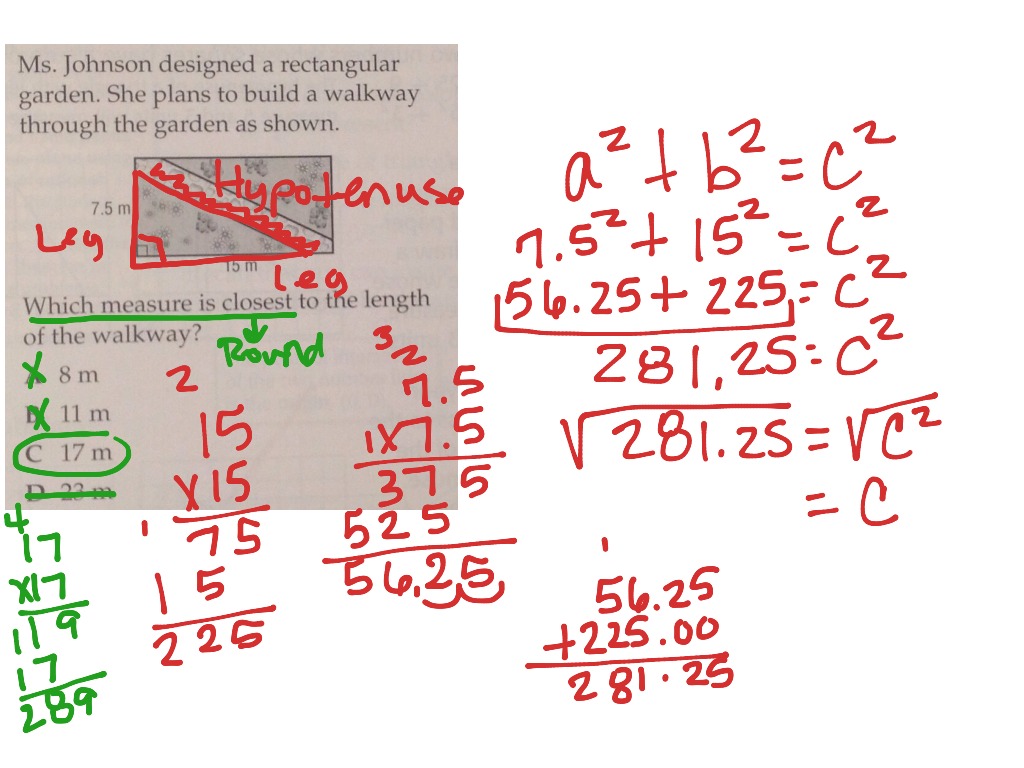 Ms. Johnson designed a rectangular
garden. She plans to build a walkway
through the garden as shown.
7.5 m
15 m
Hypotenuse
Leg
Leg
Which measure is closest to the length
of the walkway?
Round
8 m
11 m
C 17 m
D 23 m
4
17
x17
119
17
289
2
15
x15
1
75
15
225
3
2
7.5
1x7.5
375
525
56.25
a² + b² = c²
7.5² + 15² = c²
56.25 + 225 = c²
281.25 = c²
√281.25 = √c²
= c
1
56.25
+225.00
281.25